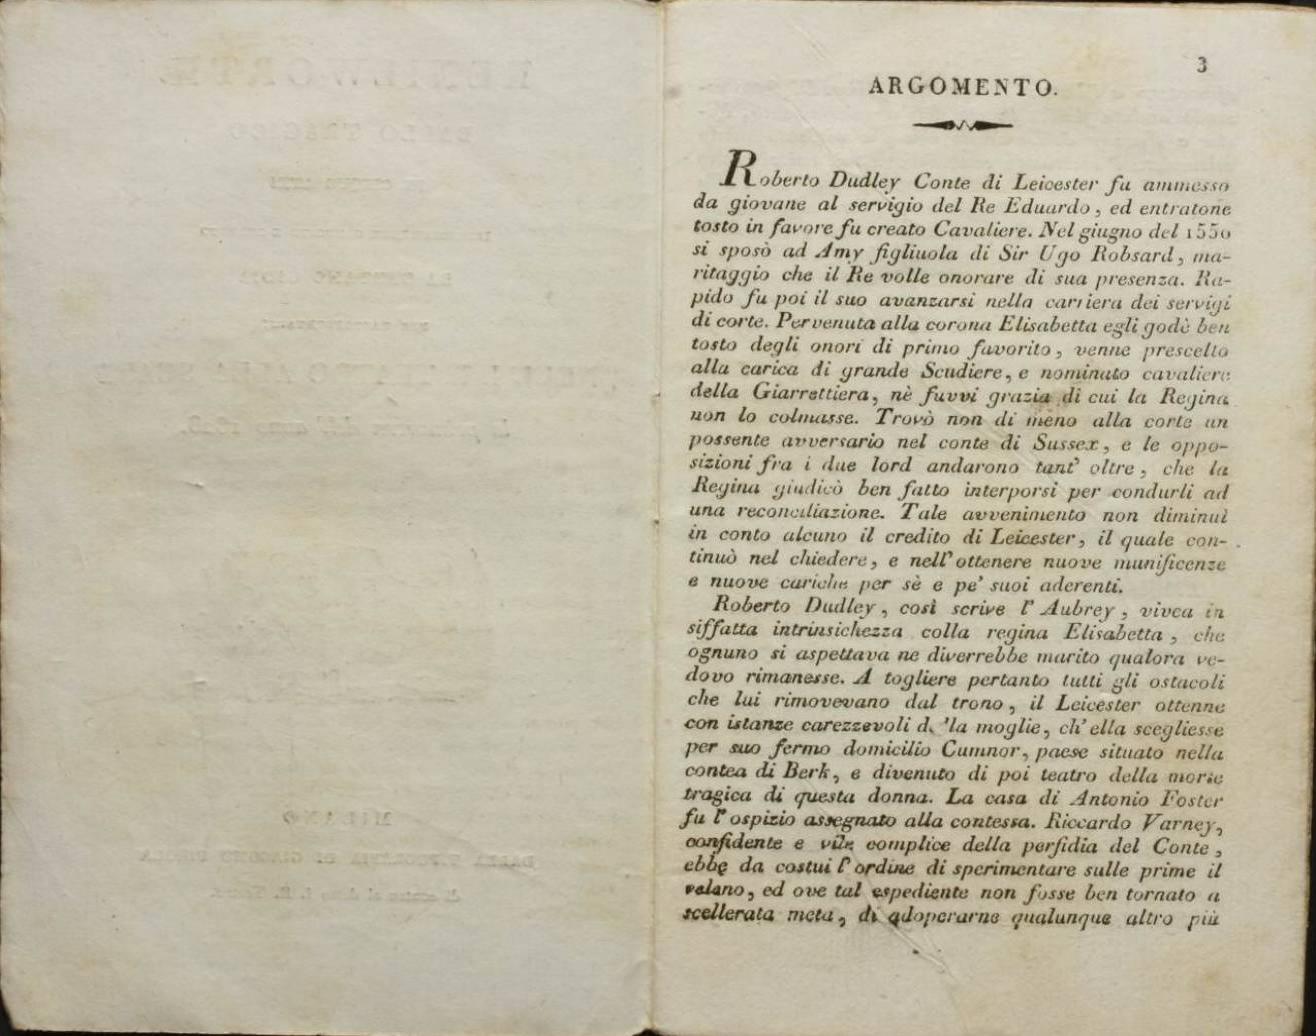 3
ARGOMENTO.
Roberto Dudley Conte di Leicester fu ammesso
da giovane al servigio del Re Eduardo, ed entratone
tosto in favore fu creato Cavaliere. Nel giugno del 1550
si sposò ad Amy figliuola di Sir Ugo Robsard, ma-
ritaggio che il Re volle onorare di sua presenza. Ra-
pido fu poi il suo avanzarsi nella carriera dei servigi
di corte. Pervenuta alla corona Elisabetta egli godè ben
tosto degli onori di primo favorito, venne prescelto
alla carica di grande Scudiere, e nominato cavaliere
della Giarrettiera, nè fuvvi grazia di cui la Regina
non lo colmasse. Trovò non di meno alla corte un
possente avversario nel conte di Sussex, e le oppo-
sizioni fra i due lord andarono tant' oltre, che la
Regina giudicò ben fatto interporsi per condurli ad
una reconciliazione. Tale avvenimento non diminuì
in conto alcuno il credito di Leicester, il quale con-
tinuò nel chiedere, e nell'ottenere nuove munificenze
e nuove cariche per sè e pe' suoi aderenti.
Roberto Dudley, così scrive l' Aubrey, vivea in
siffatta intrinsichezza colla regina Elisabetta, che
ognuno si aspettava ne diverrebbe marito qualora ve-
dovo rimanesse. A togliere pertanto tutti gli ostacoli
che lui rimovevano dal trono, il Leicester ottenne
con istanze carezzevoli da 'la moglie, ch' ella scegliesse
per suo fermo domicilio Cumnor, paese situato nella
contea di Berk, e divenuto di poi teatro della morte
tragica di questa donna. La casa di Antonio Foster
fu l' ospizio assegnato alla contessa. Riccardo Varney,
confidente e vile complice della perfidia del Conte,
ebbe da costui l' ordine di sperimentare sulle prime il
veleno, ed ove tal espediente non fosse ben tornato a
scellerata meta, di adoperarne qualunque altro più